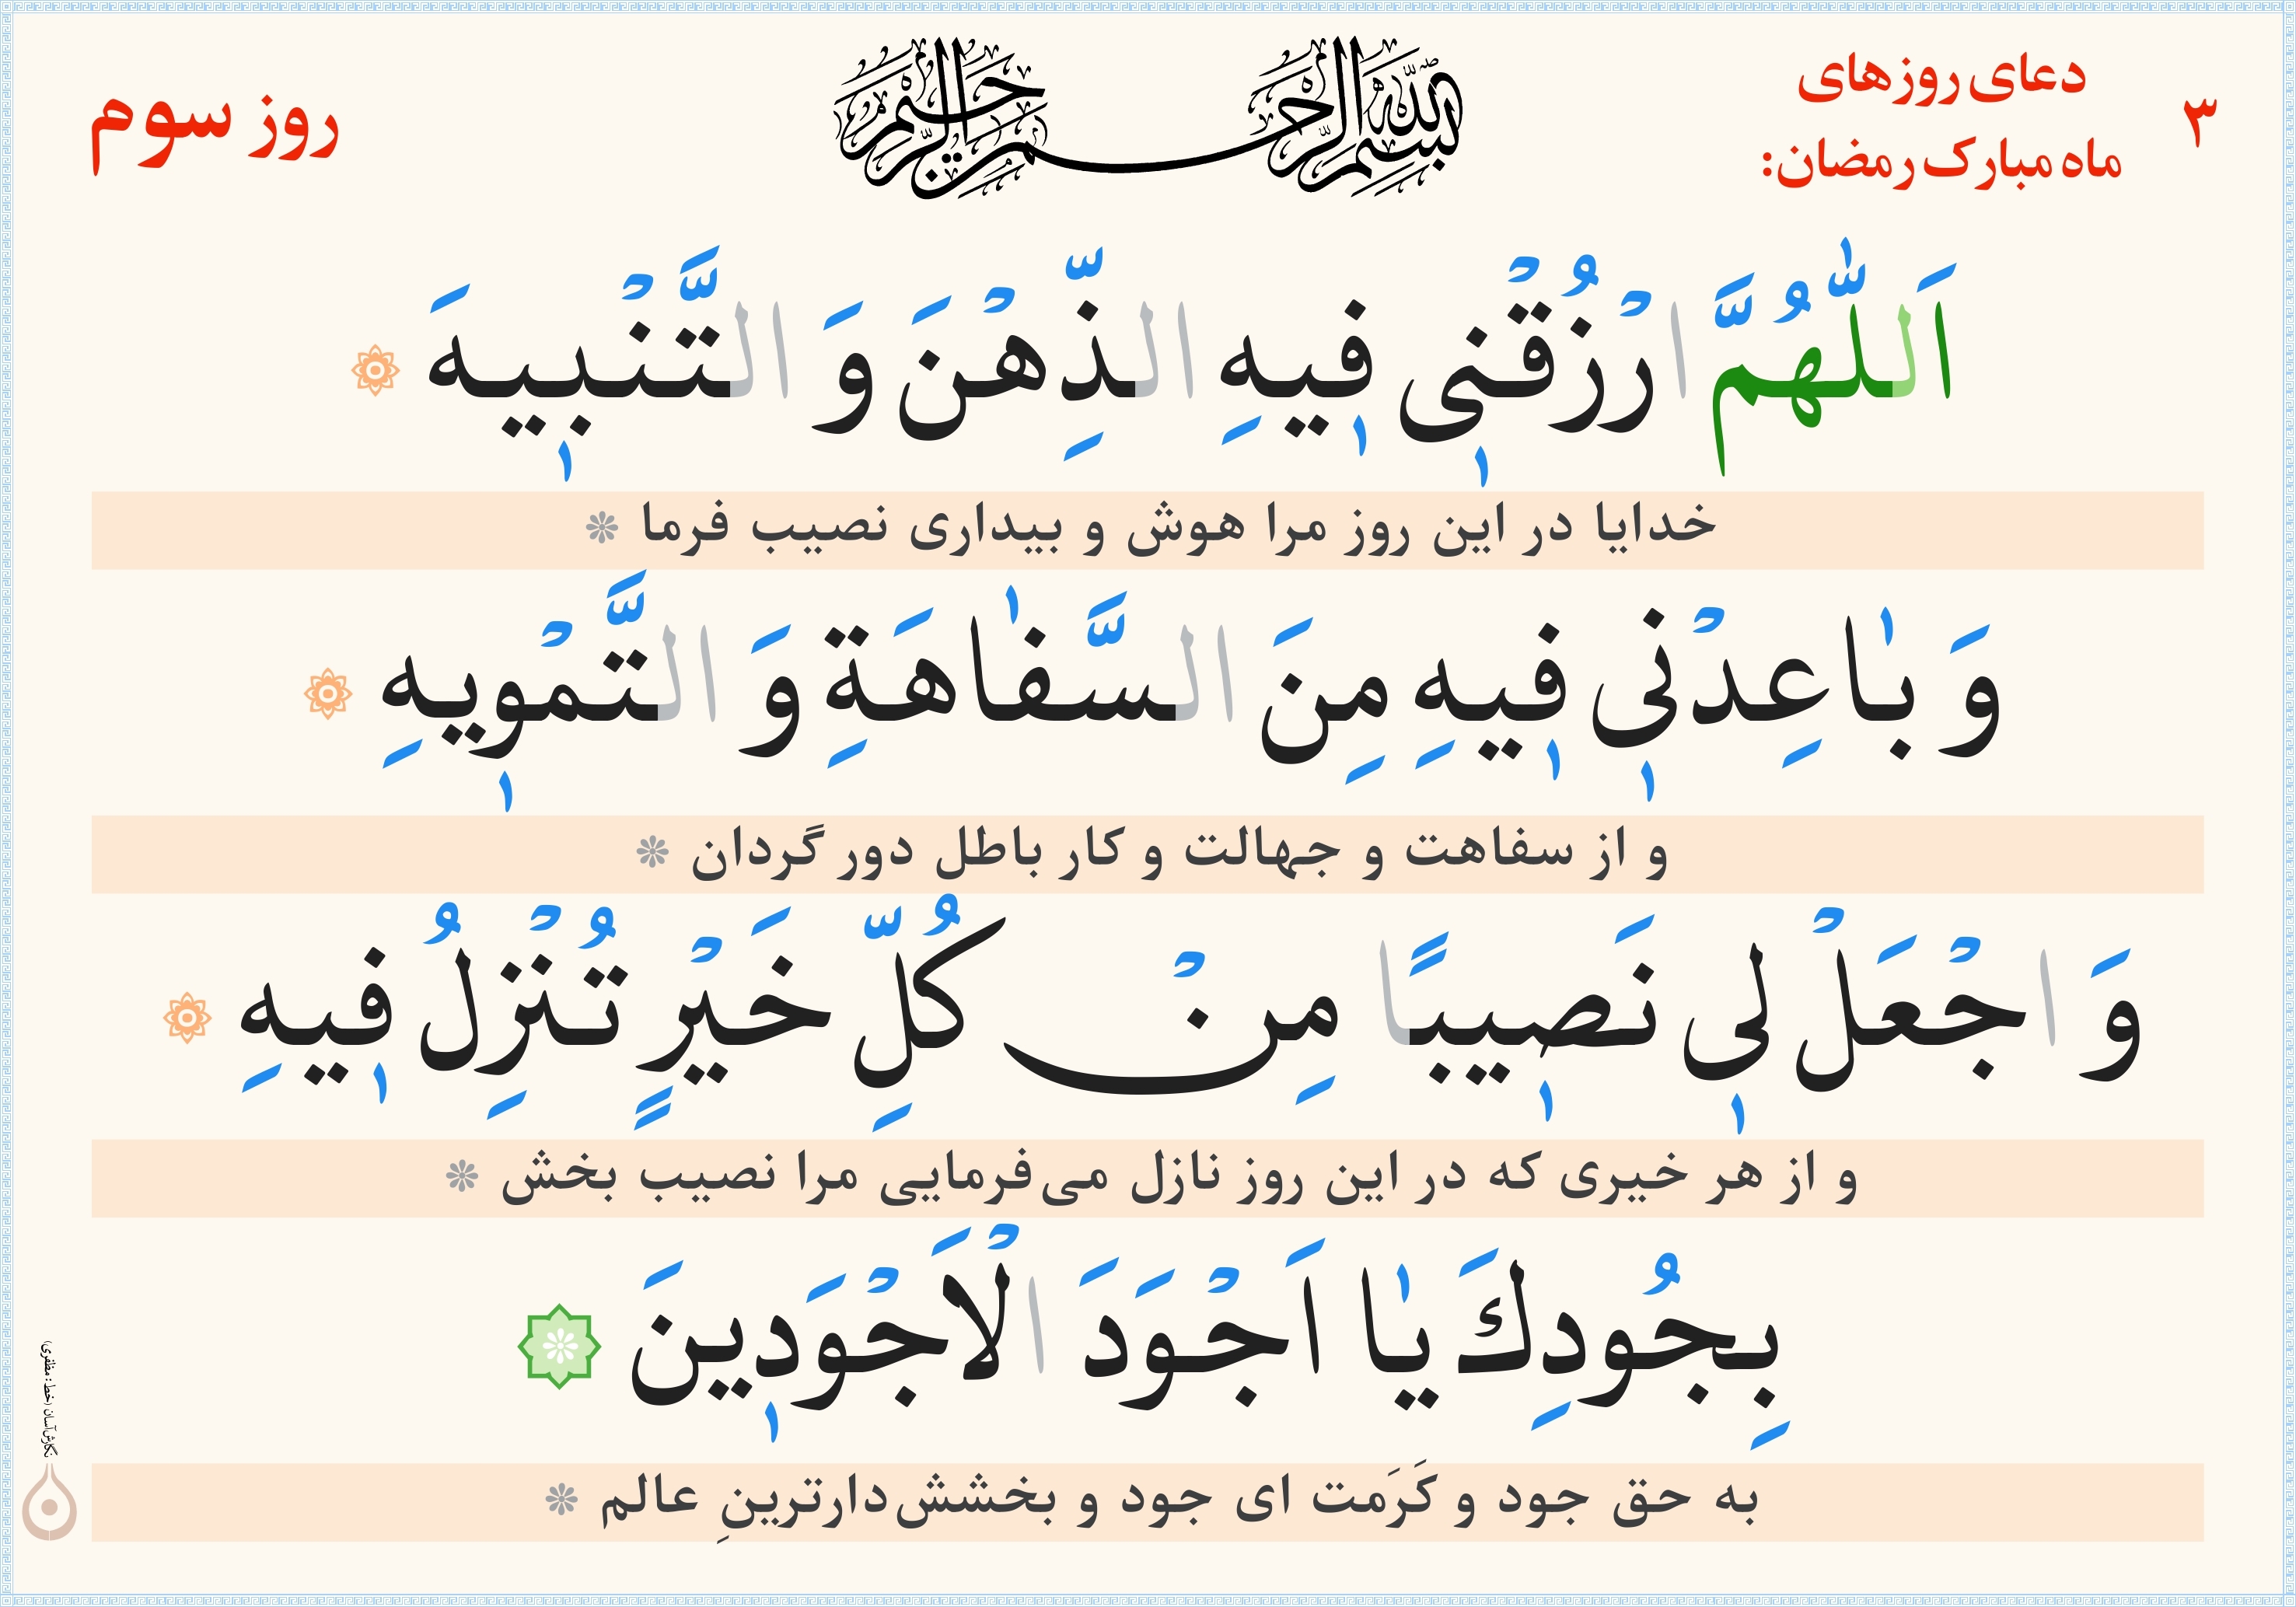 ۳
دعای روزهای
ماه مبارک رمضان:
بسم الله الرحمن الرحیم
روز سوم
اَللّٰهُمَّ ارْزُقْنٖی فٖیهِ الذِّهْنَ وَ التَّنْبٖیهَ
خدایا در این روز مرا هوش و بیداری نصیب فرما
وَ بٰاعِدْنٖی فٖیهِ مِنَ السَّفٰاهَةِ وَ التَّمْوٖیهِ
و از سفاهت و جهالت و کار باطل دور گردان
وَ اجْعَلْ لٖی نَصٖیبًا مِنْ کُلِّ خَیْرٍ تُنْزِلُ فٖیهِ
و از هر خیری که در این روز نازل می‌فرمایی مرا نصیب بخش
بِجُودِكَ یٰا اَجْوَدَ الْاَجْوَدٖینَ
به حق جود و کَرَمَت ای جود و بخشش‌دارترینِ عالم
نگارش‌آسان (خط: مظفری)